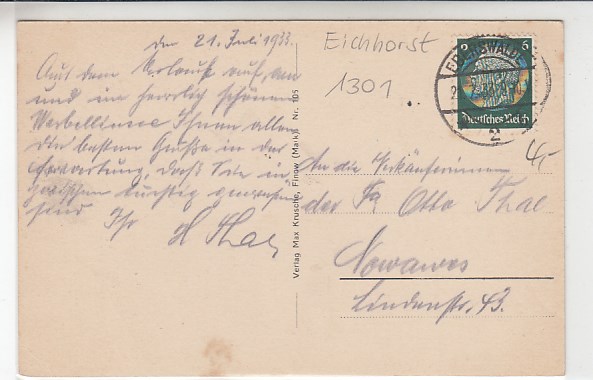 den 21. Juli 1933.
Aus dem Urlaub auf, an
und im herrlich schönen
Werbellinsee Ihnen allen
die besten Grüße in der
Erwartung, daß Sie in-
zwischen tüchtig gewesen
sind Ihr H Thal
Verlag Max Krusche, Finow (Mark). Nr. 105
Eichhorst
1301
EBERSWALDE
2
5
Deutsches Reich
2
An die Verkäuferinnen
der Fa Otto Thal
Nowawes
Lindenstr. 43.